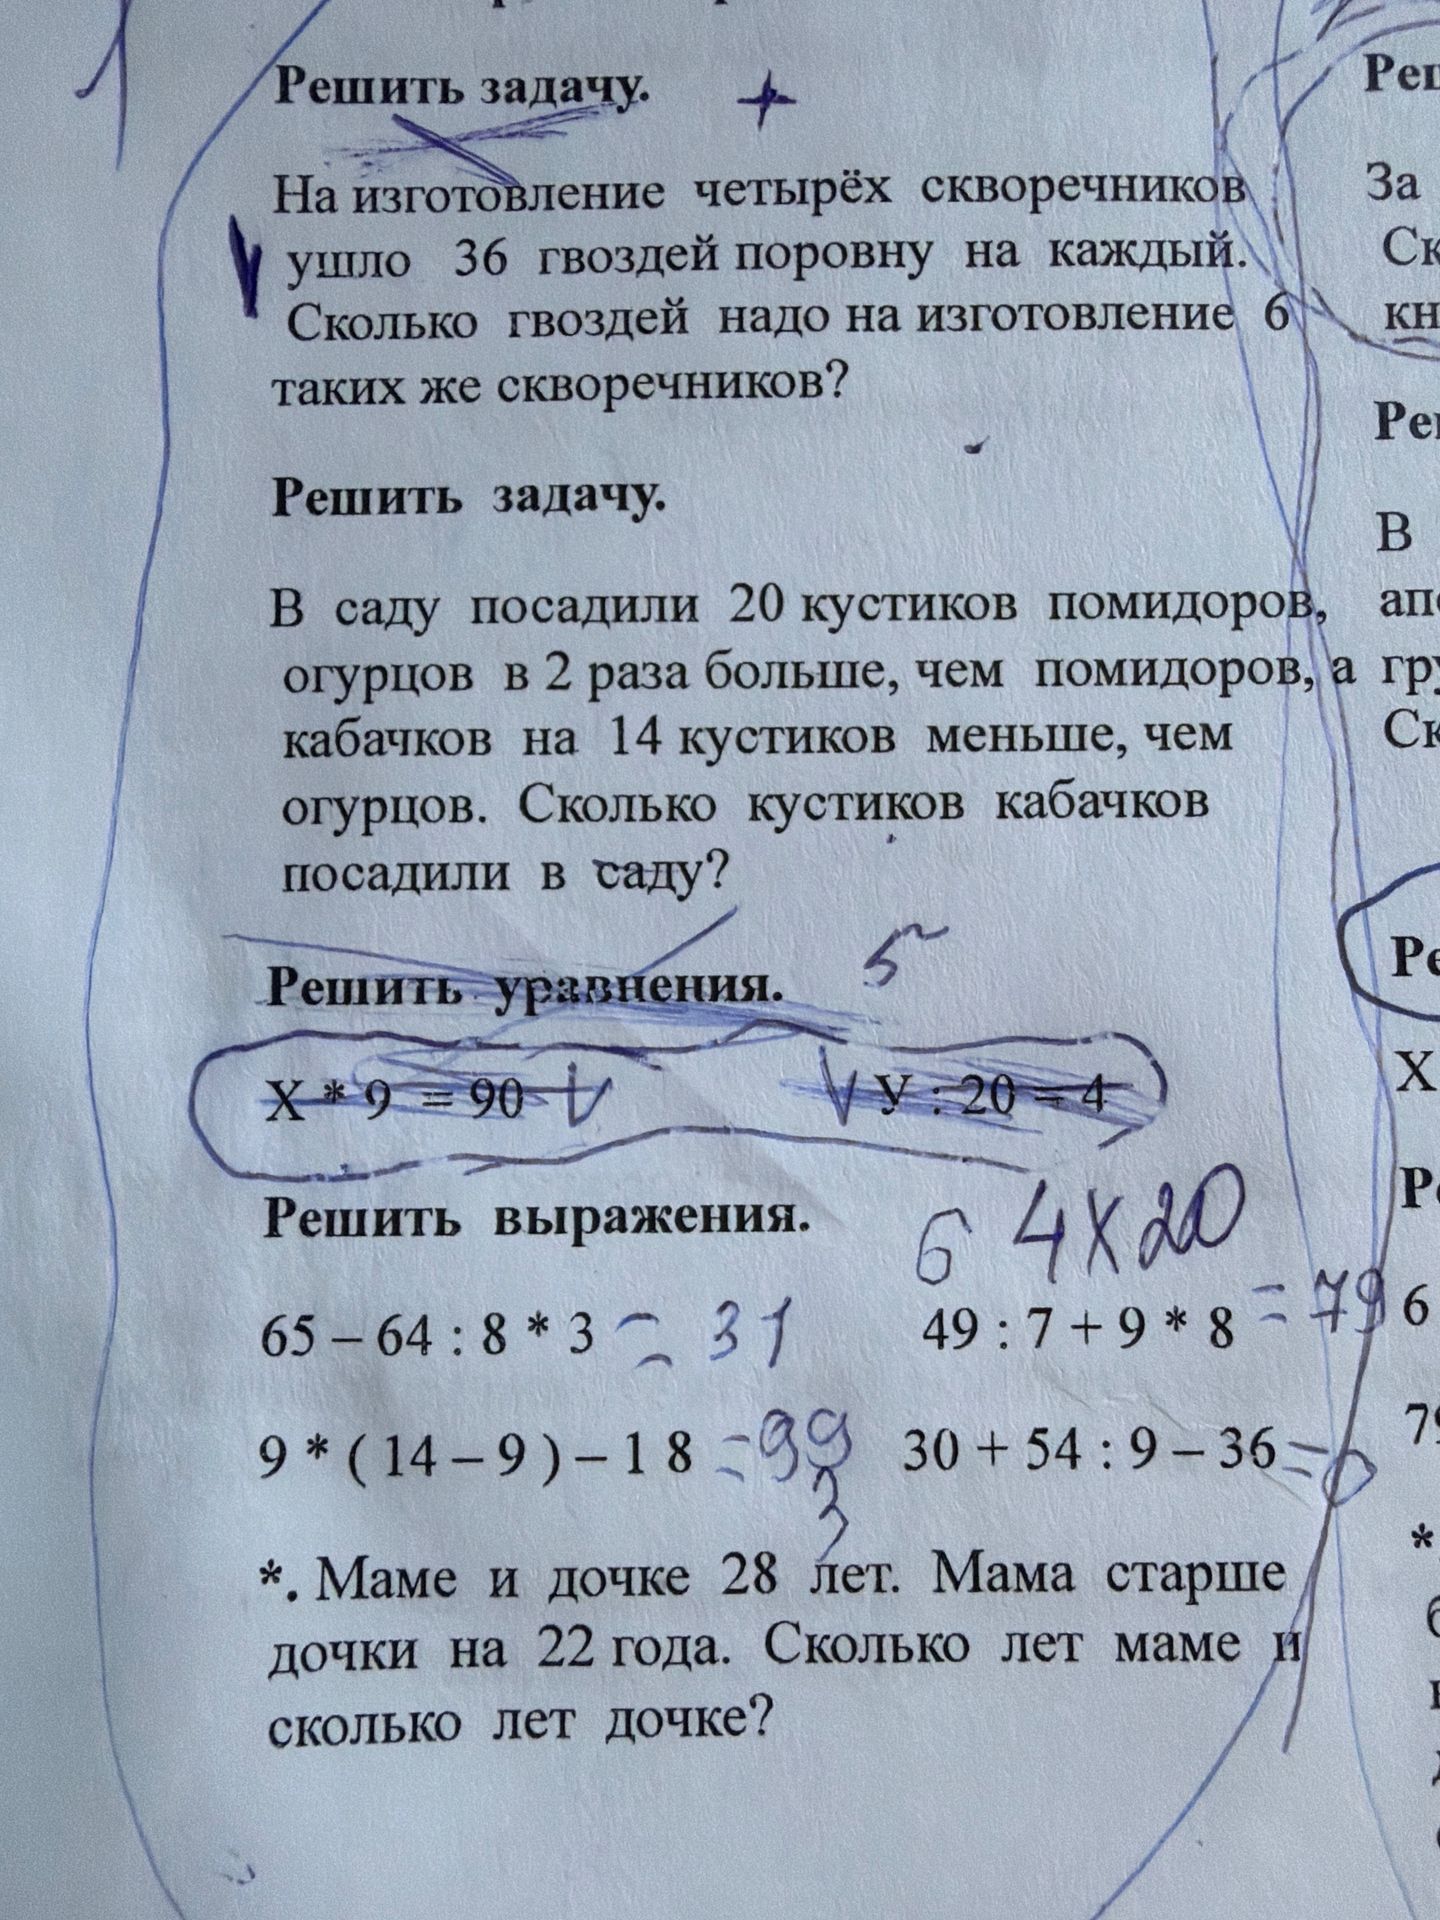 Решить задачу. +
На изготовление четырёх скворечников
ушло 36 гвоздей поровну на каждый.
Сколько гвоздей надо на изготовление 6
таких же скворечников?
Решить задачу.
В саду посадили 20 кустиков помидоров,
огурцов в 2 раза больше, чем помидоров, а
кабачков на 14 кустиков меньше, чем
огурцов. Сколько кустиков кабачков
посадили в саду?
Решить уравнения. 5
X * 9 = 90 У : 20 = 4
Решить выражения. 6 4X20
65 – 64 : 8 * 3 = 31 49 : 7 + 9 * 8 = 79
9 * ( 14 – 9 ) – 1 8 = 99 30 + 54 : 9 – 36 = 0
3
*. Маме и дочке 28 лет. Мама старше
дочки на 22 года. Сколько лет маме и
сколько лет дочке?
За
Ск
кн
В
Ск
Ре
X
6